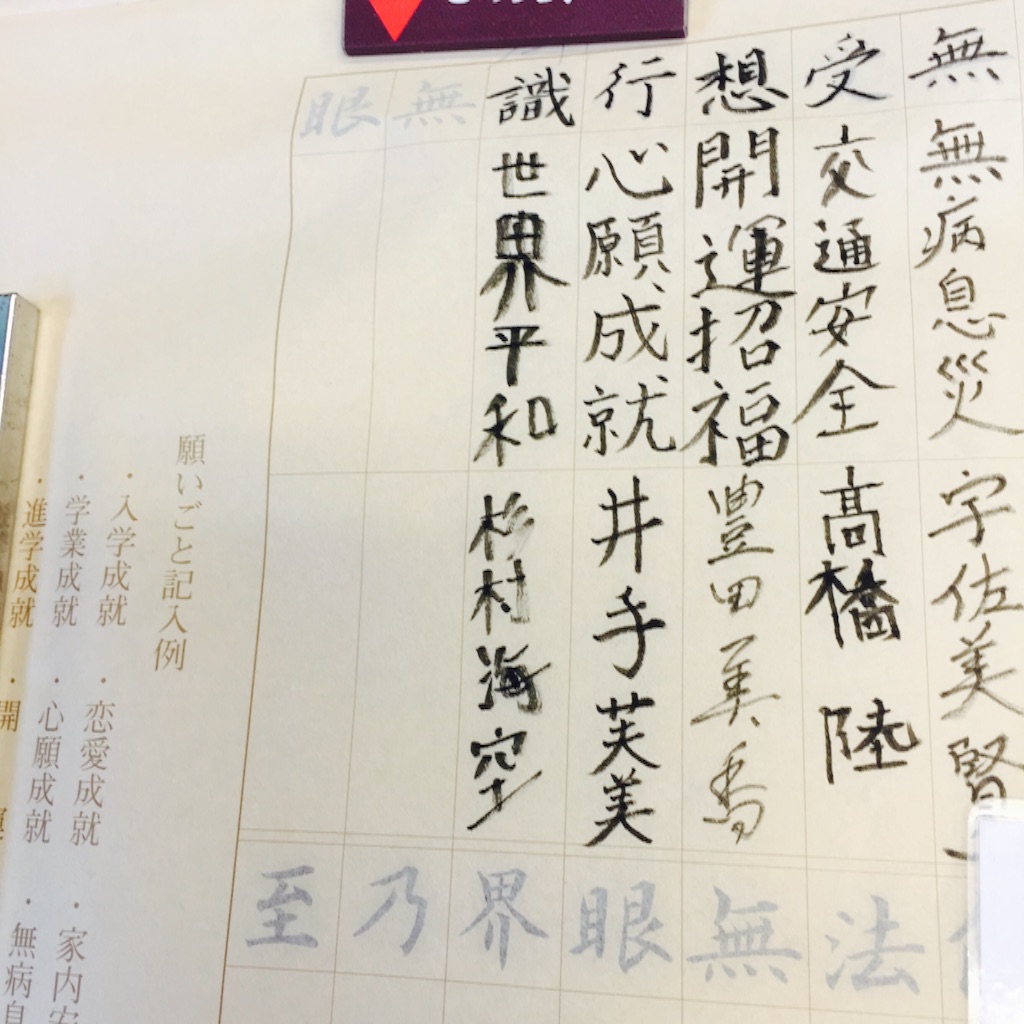 無 無病息災 宇佐美賢
受 交通安全 髙橋 陸
想 開運招福 豊田美香
行 心願成就 井手芙美
識 世界平和 杉村海空
無
眼
法
無
眼
界
乃
至
願いごと記入例
・入学成就 ・恋愛成就 ・家内安
・学業成就 ・心願成就 ・無病息
・進学成就 ・開運